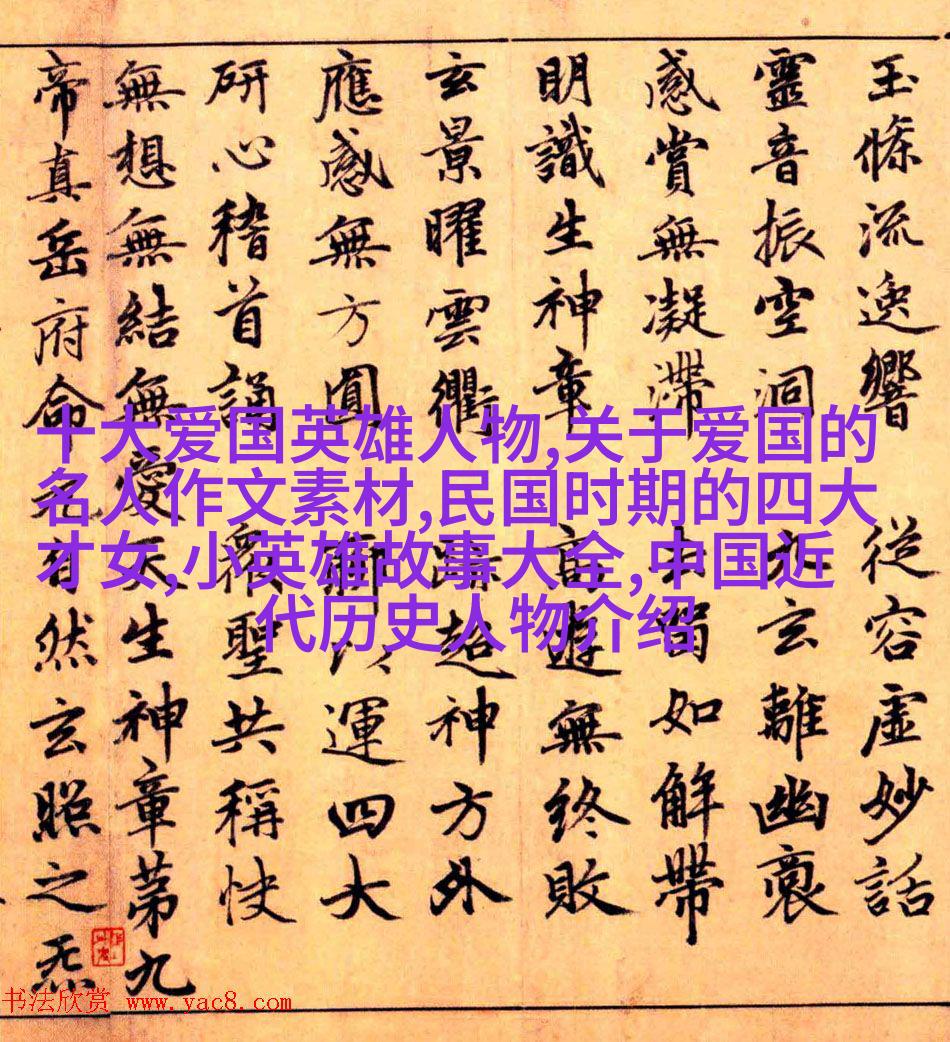 玉條流逸響 從容虛妙話
靈音振空洞 九玄離幽
感賞無凝滯 留如解帶
明識生神章 高遊無終敗
玄景曜雲衢 超神方外
應感無方圓 運四大
研心稽首誦 聖共稱快
無想無結無愛天生神章第九
帝真岳府命元自然玄照之炁
十大爱国英雄人物,关于爱国的
名人作文素材,民国时期的四大
才女,小英雄故事大全,中国近
代历史人物介绍
书法欣赏 www.yac8.com